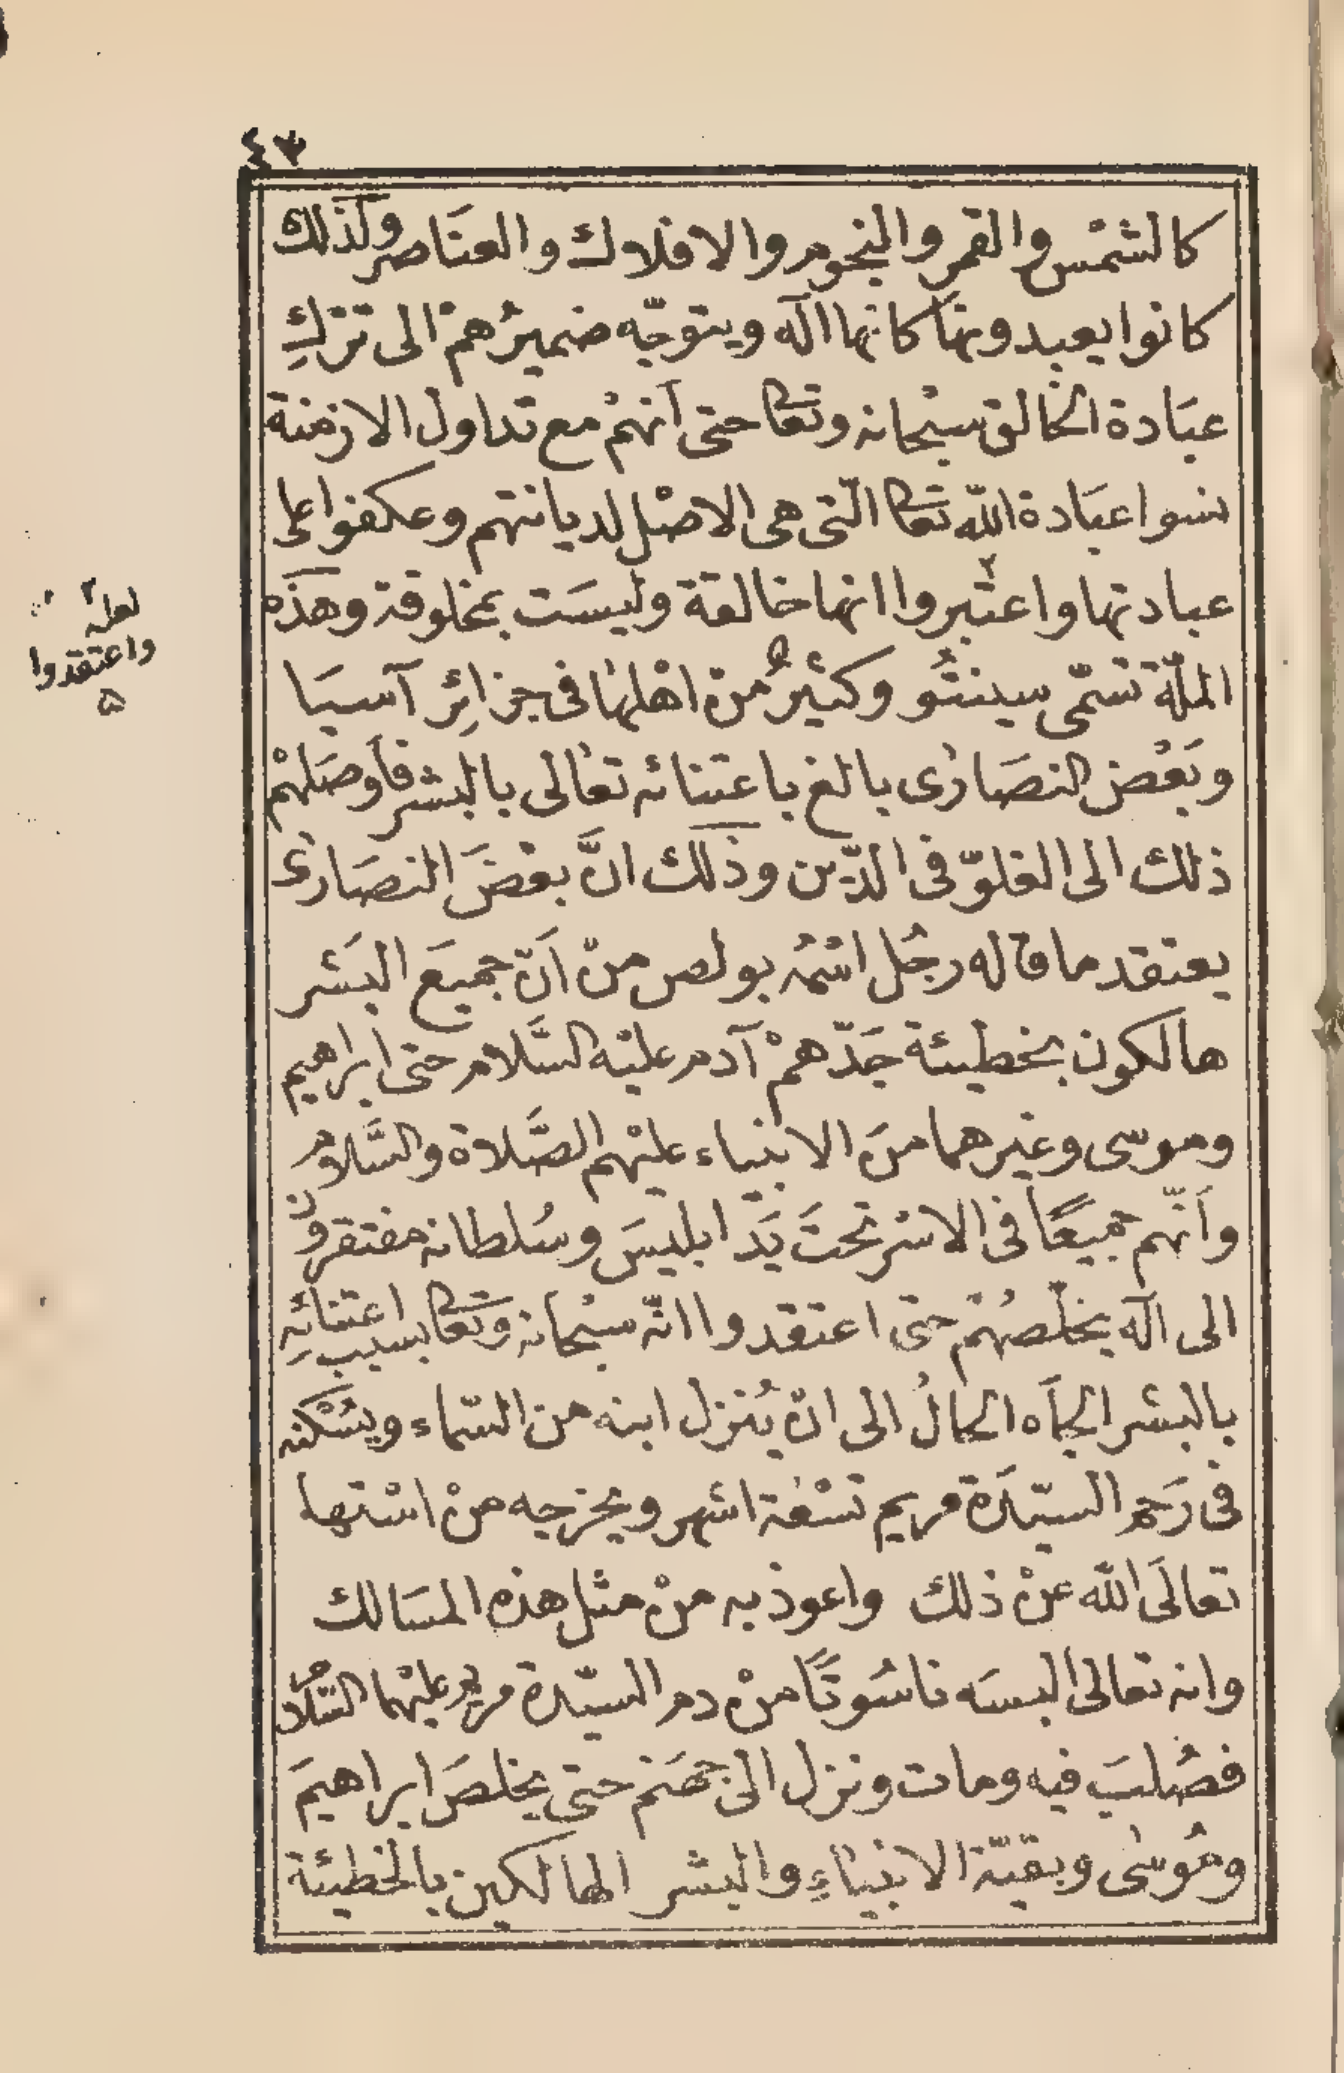 ٤٣
كالشمْس والقمر والنجوم والافلاك والعنَاصر ولذلك
كانوا يعبدونها كانها اله ويتوجّه ضميرُهمْ الى تركِ
عبَادة الخالق سبْحانه وتعالى حتى أنهمْ مع تداول الازمنة
نسوا عبَادة اللّه تعالى الّتى هى الاصْل لديانتهم وعكفوا على
عبادتها واعتبروا انها خالقة وليسَت بمخلوقة وهذه
الملّة تسمّى سينتُو وكثيرٌ منْ اهْلها فى جزائِر آسيَا
وبَعْض النصَارٰى بالغ باعتنائه تعٰالى بالبشر فأوصَلهْم
ذلك الى الغلوّ فى الدّين وذلك انَّ بعْضَ النصَارٰى
يعتقد ما قاله رجُل اسْمُه بولص منْ أنّ جميعَ البَشر
هالكون بخطيئة جَدّهمْ آدم عليْه السَّلام حتى ابراهيم
وموسى وغيرهما منَ الانبياء عليْهم الصَّلاة والسَّلام
وأنّهم جميعًا فى الاسْر تحتَ يَد ابليسَ وسُلطانه مفتقرون
الى اله يخلّصهُمْ حتى اعتقدوا انّه سبْحانه وتعالى بسبب اعتنائِهِ
بالبشر الجأه الحالُ الى انْ يُنزل ابنه من السّماء ويسْكنه
فى رَحم السيّدَة مريم تسْعَة اشهر ويخرجه منْ استها
تعالَى اللّه عنْ ذلك واعوذ به منْ مثل هذه المسَالك
وانه تعالى البسَه ناسُوتًا منْ دم السيّدة مريم عليْهما السَّلام
فصُلبَ فيه ومات ونزل الى جهَنم حتى يخلصَ ابراهيمَ
ومُوسٰى وبقيّة الانبيٰاءِ والبشر الهالكين بالخطيئة
لعله
واعتقدوا